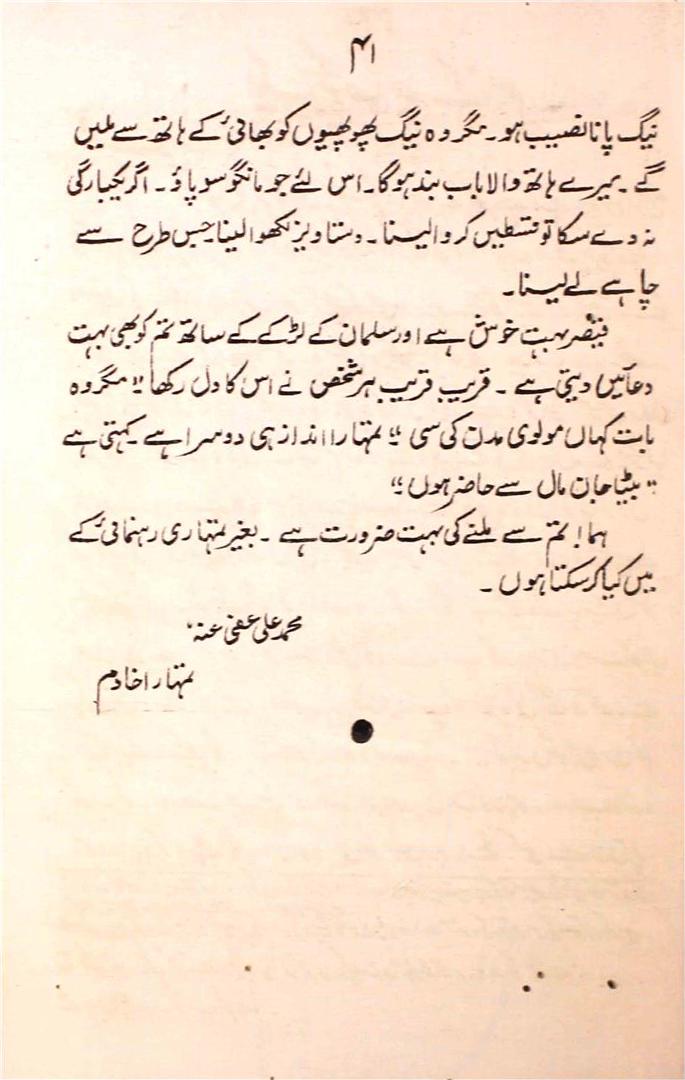 ۴۱
نیگ پانا نصیب ہو۔ مگر وہ نیگ پھوپھیوں کو بھائی کے ہاتھ سے ملیں
گے ۔ میرے ہاتھ والا باب بند ہوگا۔ اس لئے جو مانگو سو پاؤ۔ اگر یکبارگی
نہ دے سکا تو قسطیں کروا لینا ۔ دستاویز لکھوا لینا جس طرح سے
چاہے لے لینا۔
قیصر بہت خوش ہے اور سلمان کے لڑکے کے ساتھ تم کو بھی بہت
دعائیں دیتی ہے ۔ قریب قریب ہر شخص نے اس کا دل رکھا " مگر وہ
بات کہاں مولوی مدن کی سی " تمہارا انداز ہی دوسرا ہے ۔ کہتی ہے
" بیٹا جان مال سے حاضر ہوں "
ہما! تم سے ملنے کی بہت ضرورت ہے ۔ بغیر تمہاری رہنمائی کے
میں کیا کر سکتا ہوں ۔
محمد علی عفی عنہ
تمہارا خادم